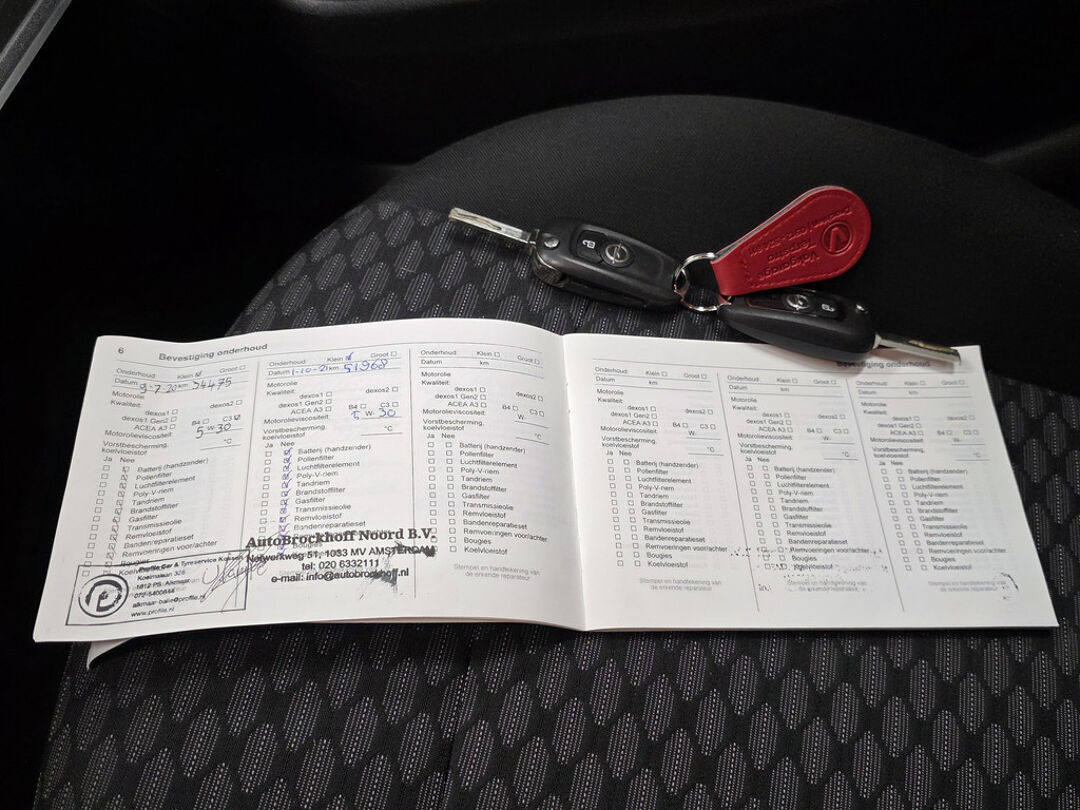 6 Bevestiging onderhoud
Onderhoud: Klein Groot
Datum 9-7-20 km 34475
Motorolie
Kwaliteit:
dexos1 dexos2
dexos1 Gen2
ACEA A3 B4 C3
Motorolieviscositeit: 5 W- 30
Vorstbescherming, koelvloeistof °C
Ja Nee
Batterij (handzender)
Pollenfilter
Luchtfilterelement
Poly-V-riem
Tandriem
Brandstoffilter
Gasfilter
Transmissieolie
Remvloeistof
Bandenreparatieset
Remvoeringen voor/achter
Bougies
Koelvloeistof
Profile Car & Tyreservice
1812 PS Alkmaar
072-5400844
www.profile.nl
Onderhoud: Klein Groot
Datum 1-10-21 km 51968
Motorolie
Kwaliteit:
dexos1 dexos2
dexos1 Gen2
ACEA A3 B4 C3
Motorolieviscositeit: 5 W- 30
Vorstbescherming, koelvloeistof °C
Ja Nee
Batterij (handzender)
Pollenfilter
Luchtfilterelement
Poly-V-riem
Tandriem
Brandstoffilter
Gasfilter
Transmissieolie
Remvloeistof
Bandenreparatieset
AutoBrockhoff Noord B.V.
Metwerkweg 51, 1033 MV AMSTERDAM
tel: 020 6332111
e-mail: info@autobrockhoff.nl
Onderhoud: Klein Groot
Datum km
Motorolie
Kwaliteit:
dexos1 dexos2
dexos1 Gen2
ACEA A3 B4 C3
Motorolieviscositeit: W-
Vorstbescherming, koelvloeistof °C
Ja Nee
Batterij (handzender)
Pollenfilter
Luchtfilterelement
Poly-V-riem
Tandriem
Brandstoffilter
Gasfilter
Transmissieolie
Remvloeistof
Bandenreparatieset
Remvoeringen voor/achter
Bougies
Koelvloeistof
Stempel en handtekening van
de erkende reparateur
Bevestiging onderhoud
Onderhoud: Klein Groot
Datum km
Motorolie
Kwaliteit:
dexos1 dexos2
dexos1 Gen2
ACEA A3 B4 C3
Motorolieviscositeit: W-
Vorstbescherming, koelvloeistof °C
Ja Nee
Batterij (handzender)
Pollenfilter
Luchtfilterelement
Poly-V-riem
Tandriem
Brandstoffilter
Gasfilter
Transmissieolie
Remvloeistof
Bandenreparatieset
Remvoeringen voor/achter
Bougies
Koelvloeistof
Stempel en handtekening van
de erkende reparateur
Onderhoud: Klein Groot
Datum km
Motorolie
Kwaliteit:
dexos1 dexos2
dexos1 Gen2
ACEA A3 B4 C3
Motorolieviscositeit: W-
Vorstbescherming, koelvloeistof °C
Ja Nee
Batterij (handzender)
Pollenfilter
Luchtfilterelement
Poly-V-riem
Tandriem
Brandstoffilter
Gasfilter
Transmissieolie
Remvloeistof
Bandenreparatieset
Remvoeringen voor/achter
Bougies
Koelvloeistof
Stempel en handtekening van
de erkende reparateur
Onderhoud: Klein Groot
Datum km
Motorolie
Kwaliteit:
dexos1 dexos2
dexos1 Gen2
ACEA A3 B4 C3
Motorolieviscositeit: W-
Vorstbescherming, koelvloeistof °C
Ja Nee
Batterij (handzender)
Pollenfilter
Luchtfilterelement
Poly-V-riem
Tandriem
Brandstoffilter
Gasfilter
Transmissieolie
Remvloeistof
Bandenreparatieset
Remvoeringen voor/achter
Bougies
Koelvloeistof
Stempel en handtekening van
de erkende reparateur